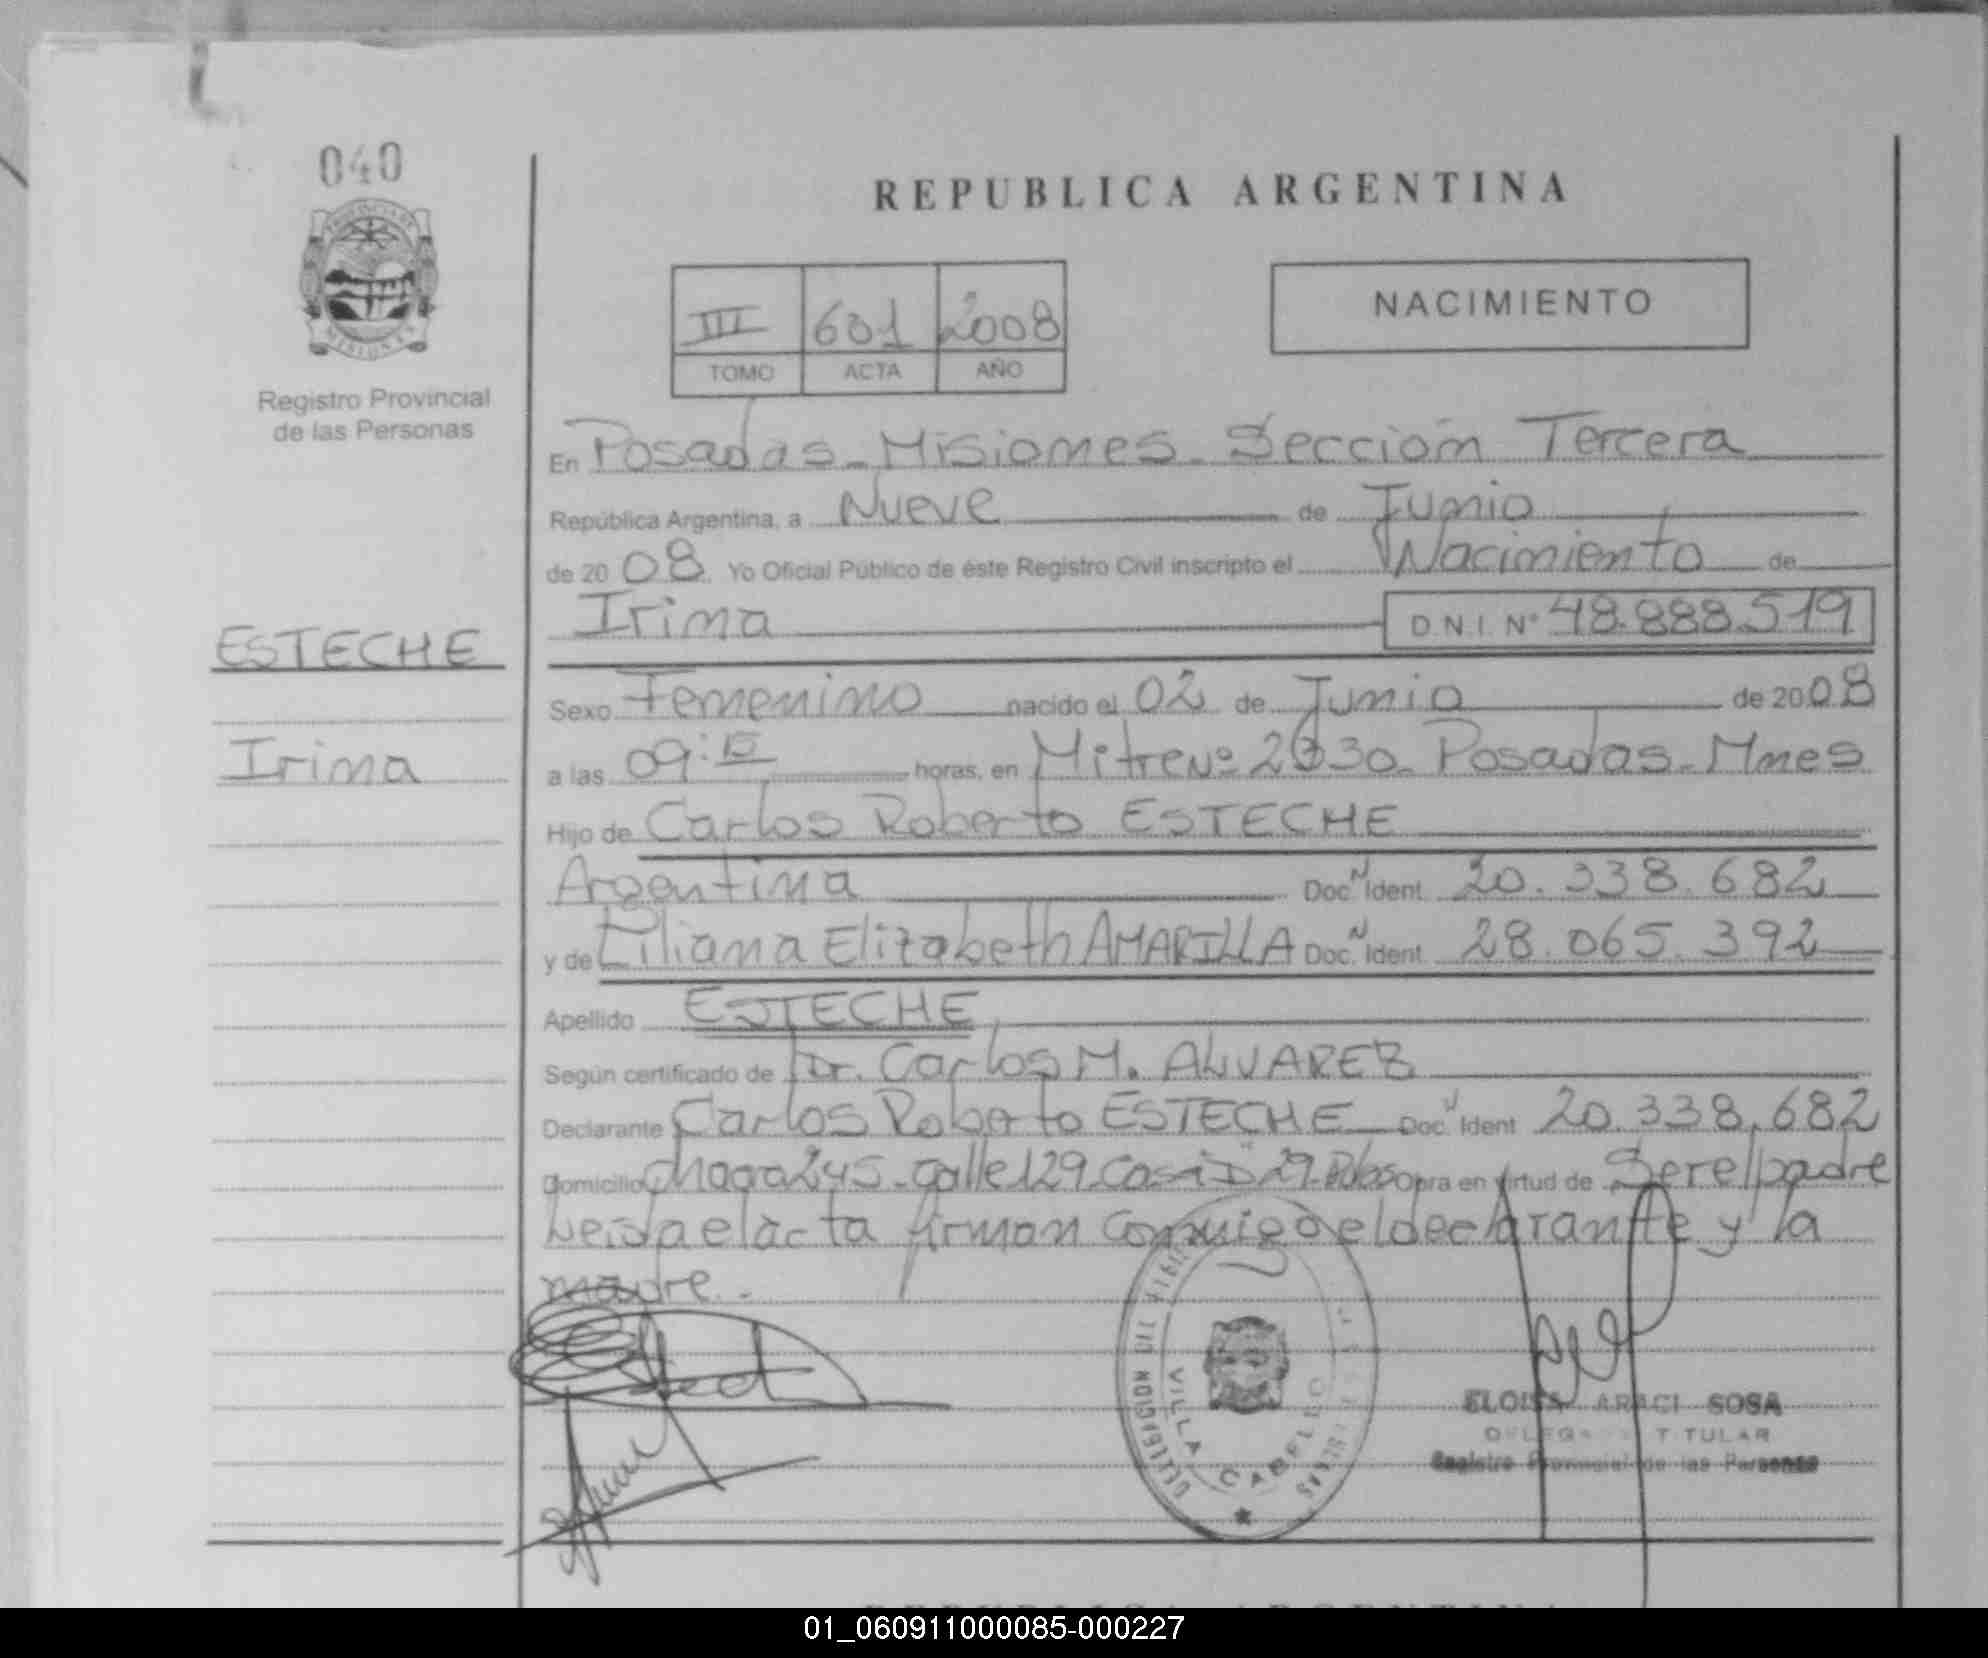 040
PROVINCIA DE
MISIONES
Registro Provincial
de las Personas
REPUBLICA ARGENTINA
III 601 2008
TOMO ACTA AÑO
NACIMIENTO
En Posadas - Misiones - Sección Tercera
República Argentina, a Nueve de Junio
de 20 08 Yo Oficial Público de éste Registro Civil inscripto el Nacimiento de
Irina D.N.I. Nº 48.888.519
ESTECHE
Sexo Femenino nacido el 02 de Junio de 20 08
Irina
a las 09:15 horas, en Mitre Nº 2030 - Posadas - Mnes
Hijo de Carlos Roberto ESTECHE
Argentina Doc. Ident. 20.338.682
y de Liliana Elizabeth AMARILLA Doc. Ident. 28.065.392
Apellido ESTECHE
Según certificado de Dr. Carlos M. ALVAREZ
Declarante Carlos Roberto ESTECHE Doc. Ident 20.338.682
Domicilio Chacra 245 - Calle 129 - Casa 29 - Pdas Obra en virtud de Ser el padre
Leida el acta firman conmigo el declarante y la
madre.
VILLA CABELLO
ELOISA ARACI SOSA
DELEGADA TITULAR
Registro Provincial de las Personas
01_060911000085-000227